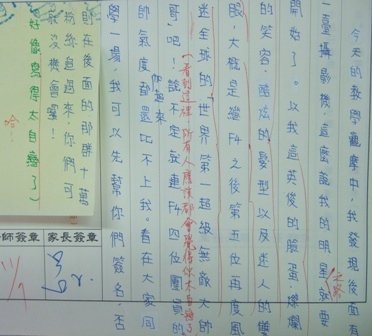 今天的教學觀摩中，我發現後面有
一臺攝影機，這麼說我的明星之路就要
開始了。以我這英俊的臉蛋、燦爛
的笑容、酷炫的髮型以及迷人的
服，大概是繼F4之後第五位再度風
迷全球的「世界第一超級無敵大帥
哥」吧！說不定就連F4四位團員的
(看到這裡，所有人應該都會覺得你太自戀了)
帥氣度都還比不上我。看在大家同
學一場，我可以先幫你們簽名，否
則在後面的那勝十萬
粉絲追過來，你們可
就沒機會囉！
(好像寫得太自戀了)
哈！
師簽章
家長簽章